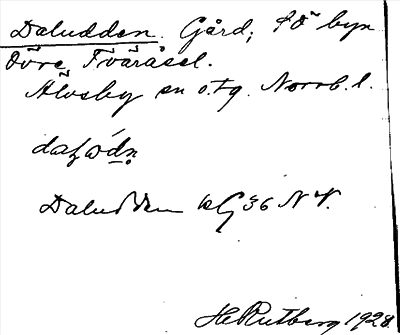 Daludden. Gård, i byn
Övre Tväråsel.
Älvsby sn o. tg. Norrb. l.
Daludden KG 36 NV.
H Rutberg 1928.